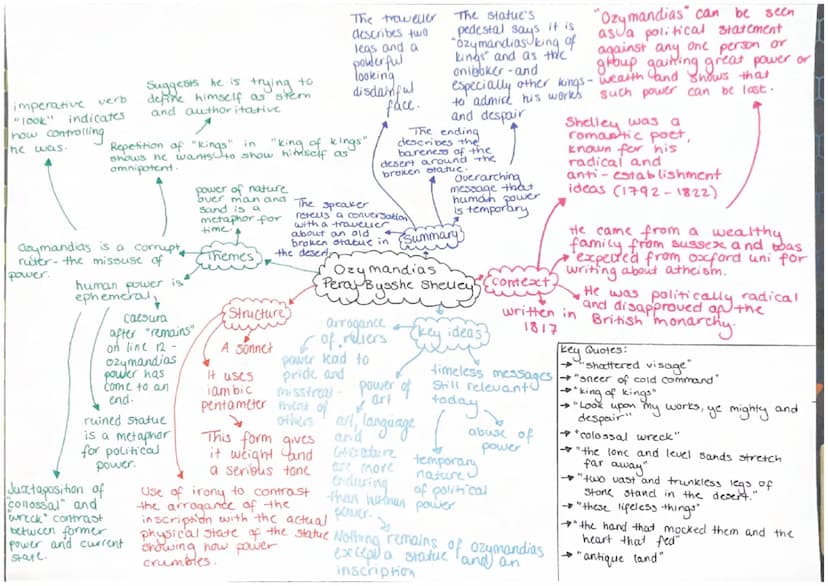 Ozymandias
Percy Bysshe Shelley
Summary
The speaker
retells a conversation
with a traveller
about an old
broken statue in
the desert
The traveller
describes two
legs and a
powerful
looking
disdainful
face.
The ending
describes the
bareness of the
desert around the
broken statue.
The statue's
pedestal says it is
"ozymandias king of
kings" and as the
onlooker - and
especially other kings-
to admire his works
and despair
Overarching
message that
human power
is temporary
Context
"Ozymandias" can be seen
as a political statement
against any one person or
group gaining great power or
wealth and shows that
such power can be lost.
Shelley was a
romantic poet,
known for his
radical and
anti-establishment
ideas (1792-1822)
He came from a wealthy
family from sussex and was
expelled from oxford uni for
writing about atheism.
He was politically radical
and disapproved of the
British monarchy.
written in
1817
Themes
power of nature
over man and
sand is a
metaphor for
time.
Ozymandias is a corrupt
ruler- the misuse of
power.
imperative verb
"look" indicates
how controlling
he was.
Repetition of "kings" in "king of kings"
shows he wants to show himself as
omnipotent.
Suggests he is trying to
define himself as stern
and authoritative
human power is
ephemeral
caesura
after "remains"
on line 12 -
ozymandias
power has
come to an
end.
ruined statue
is a metaphor
for political
power.
Juxtaposition of
"collosal" and
"wreck" contrast
between former
power and current
state.
Structure
A sonnet
It uses
iambic
pentameter
This form gives
it weight and
a serious tone
Use of irony to contrast
the arrogance of the
inscription with the actual
physical state of the statue
showing how power
crumbles.
Key ideas
arrogance
of rulers
power lead to
pride and
mistreat-
ment of
others
power of
art
art, language
and
literature
are more
enduring
than human
power.
timeless messages
still relevant
today
abuse of
power
temporary
nature
of political
power
Nothing remains of ozymandias
except a statue and an
inscription
Key Quotes:
→ "shattered visage"
→ "sneer of cold command"
→ "king of kings"
→ "Look upon my works, ye mighty and
despair"
→ "colossal wreck"
→ "the lone and level sands stretch
far away"
→ "two vast and trunkless legs of
stone stand in the desert."
→ "these lifeless things"
→ "the hand that mocked them and the
heart that fed"
→ "antique land"